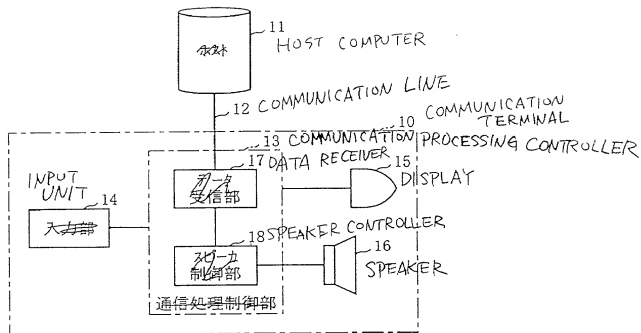 11
HOST COMPUTER
ホスト
12 COMMUNICATION LINE
10 COMMUNICATION TERMINAL
13 COMMUNICATION PROCESSING CONTROLLER
17 DATA RECEIVER
15
データ
受信部
DISPLAY
INPUT
UNIT
14
入力部
18 SPEAKER CONTROLLER
16
スピーカ
制御部
SPEAKER
通信処理制御部